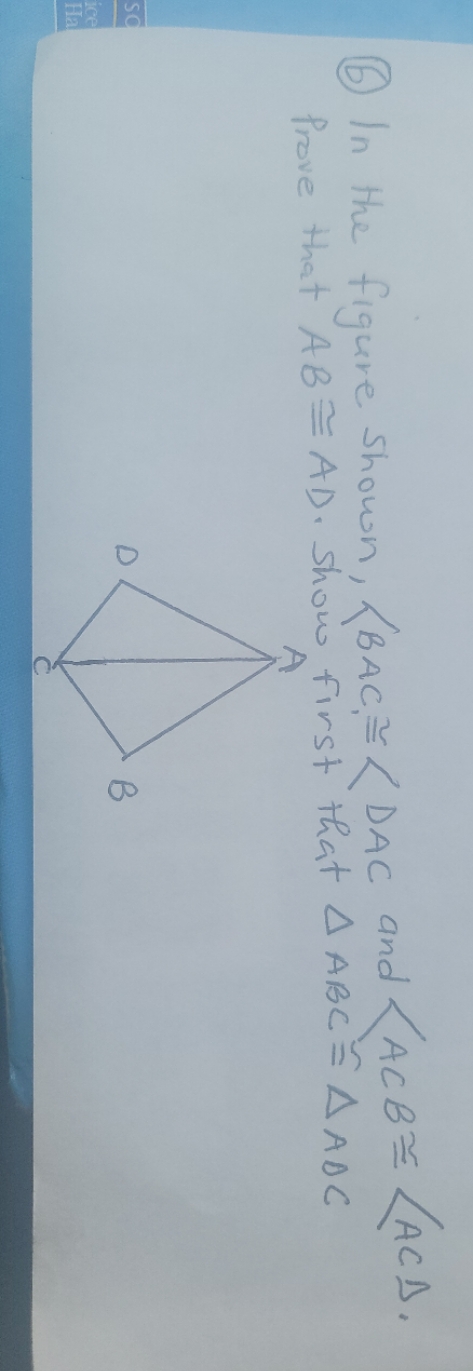 ⑥ In the figure shown, <BAC ≅ <DAC and <ACB ≅ <ACD.
Prove that AB ≅ AD. Show first that Δ ABC ≅ Δ ADC
A
D
B
C
SO
ice
Па